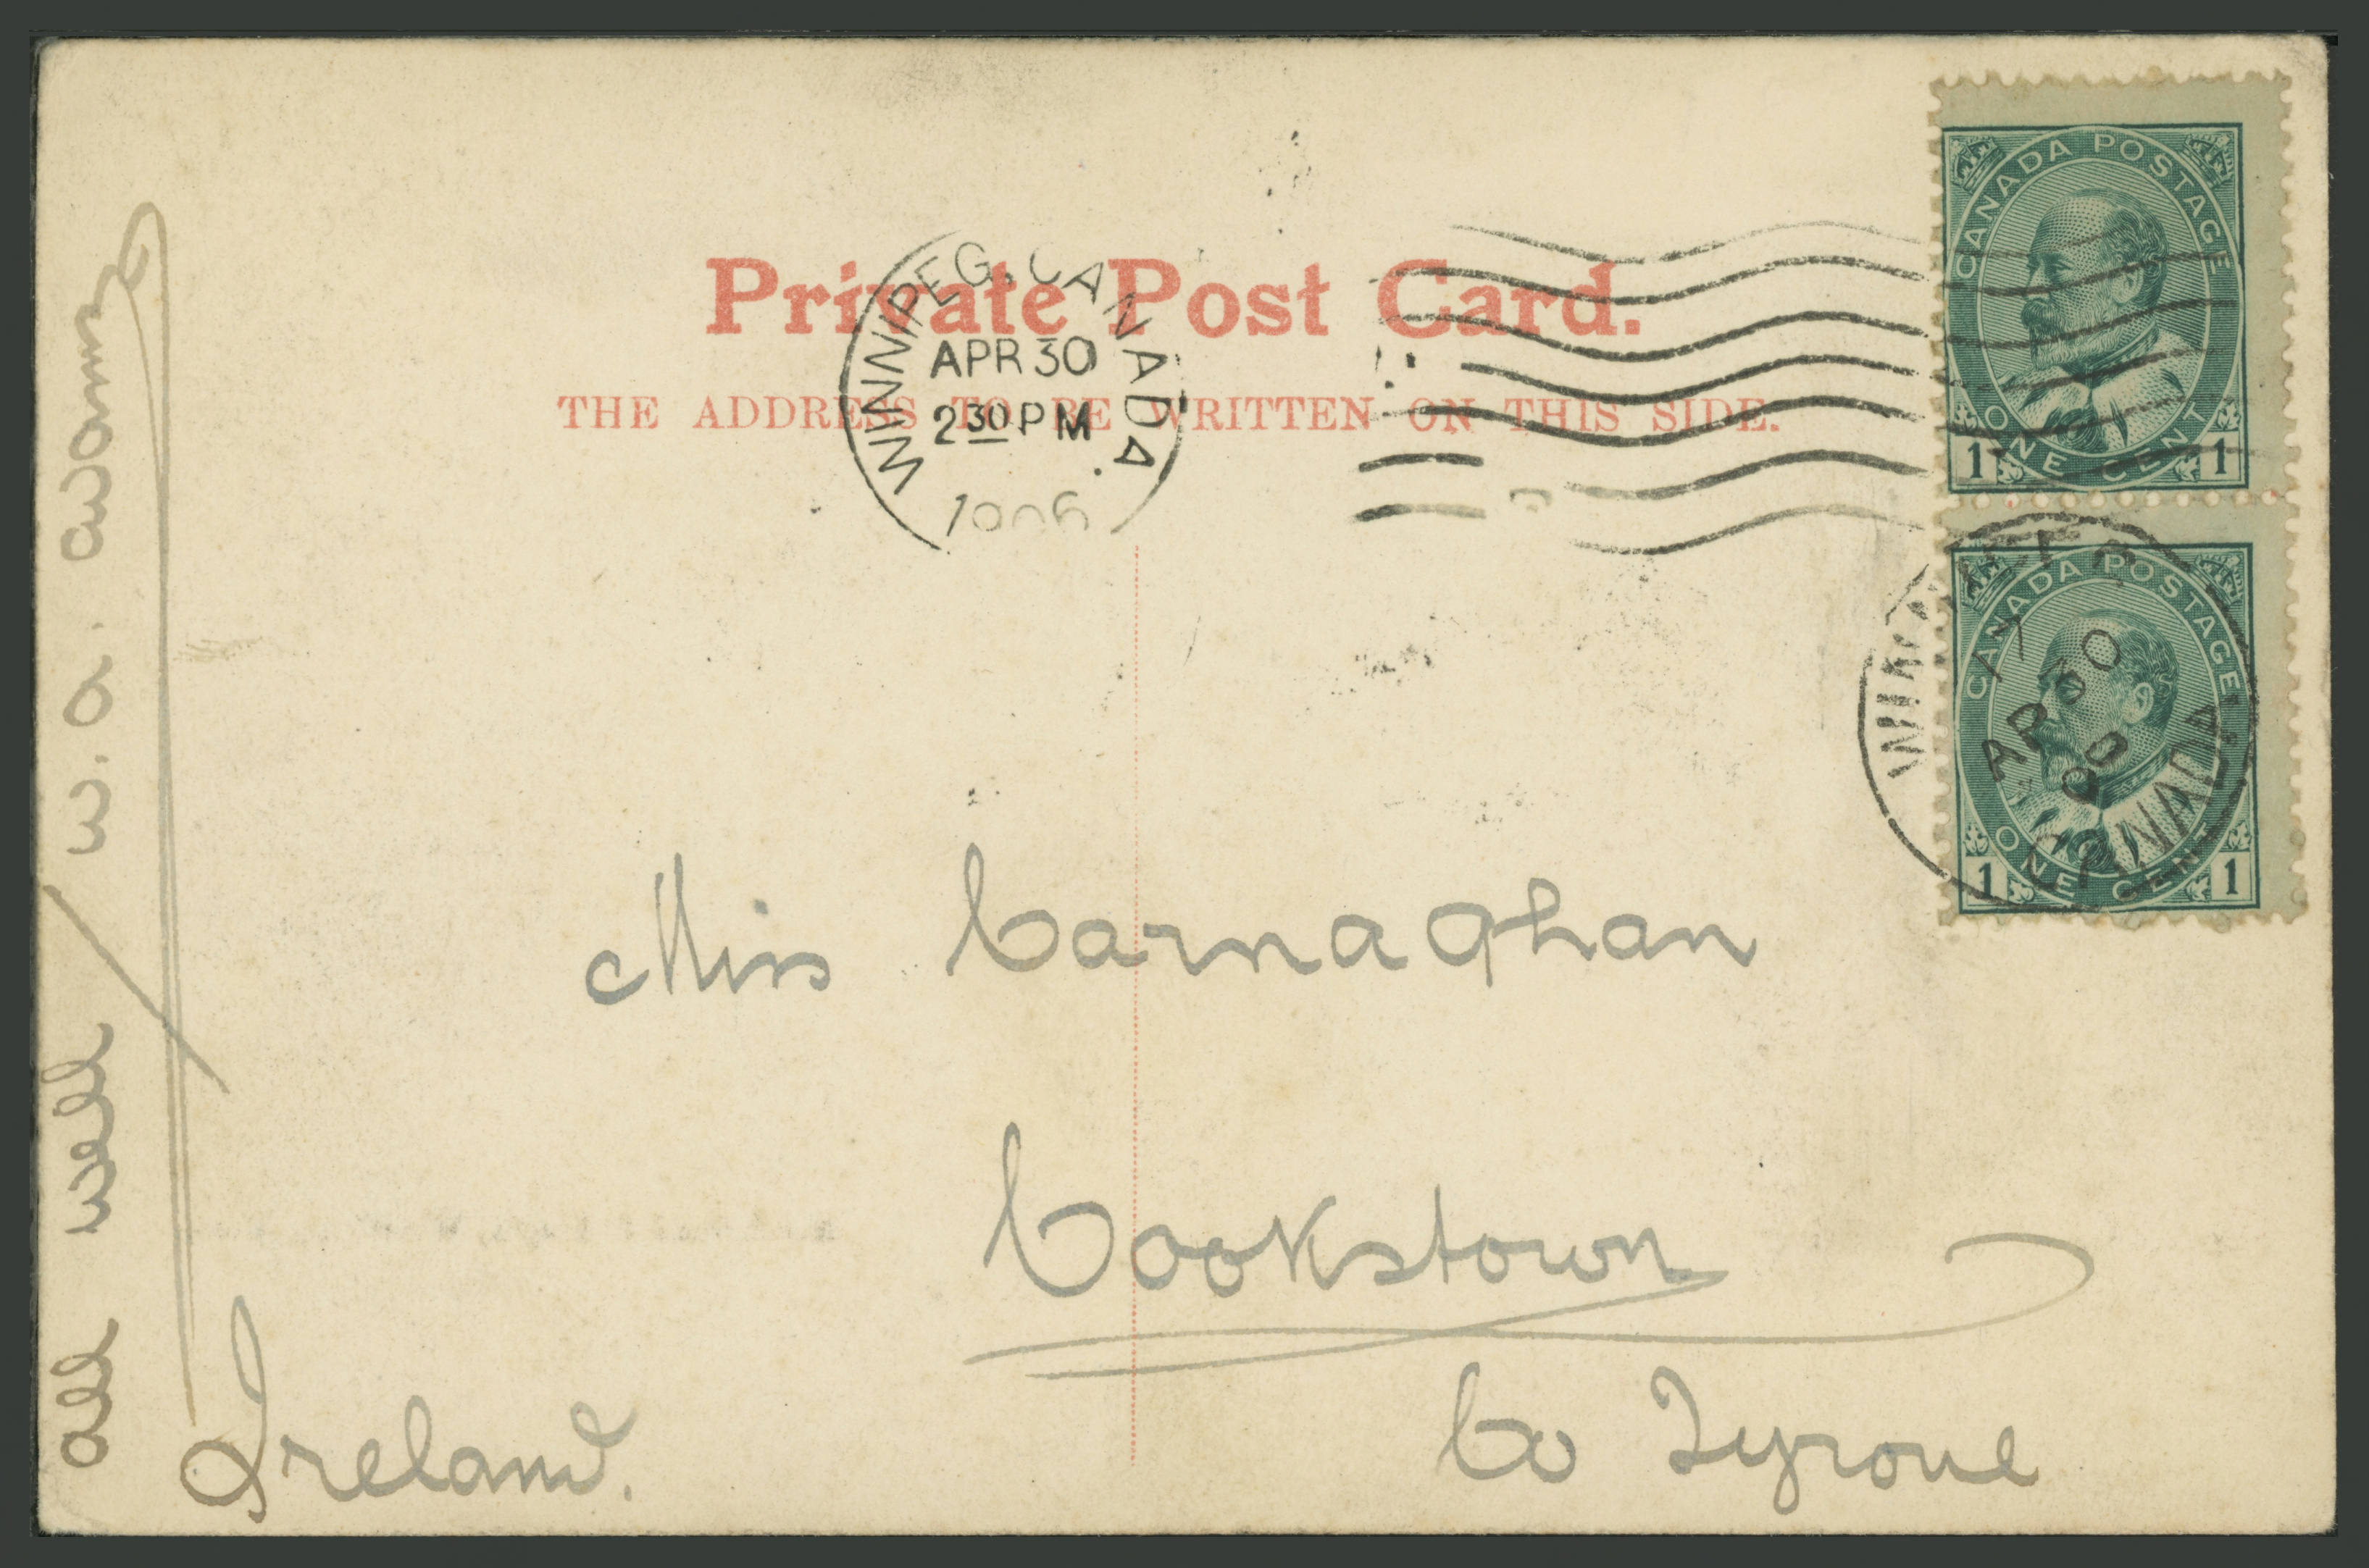 Private Post Card.
THE ADDRESS TO BE WRITTEN ON THIS SIDE.
WINNIPEG. CANADA
APR 30
2 30 PM
1906
CANADA POSTAGE
ONE CENT
1 1
CANADA POSTAGE
ONE CENT
1 1
17
AP 30
CANADA
Miss Carnaghan
Cookstown
Co Tyrone
Ireland.
all well / W. A.